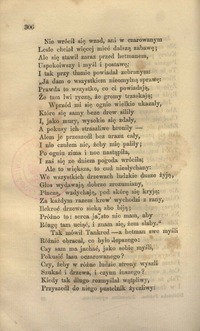 306
Nie wrócił się wzad, ani w czarowanym
Lesie chciał więcej mieć dalszą zabawę;
Ale się stawił zaraz przed hetmanem,
Uspokoiwszy i myśl i postawę;
I tak przy tłumie powiadał zebranym:
„Ja dam o wszystkiem nieomylną sprawę:
Prawda to wszystko, co ci powiedają,
Że tam lwi ryczą, że gromy trzaskają;
Wprzód mi się ognie wielkie ukazały,
Które się samy beze drew nieciły
I, jako mury, wysokie się zdały,
A pokusy ich strasznie broniły —
Alem je przeszedł bez urazu cały,
I nie czułem nic, żeby mię paliły;
Po ogniu zima i noc nastąpiła,
I zaś się ze dniem pogoda wróciła;
Ale to większa, to cud niesłychany:
We wszystkich drzewach ludzkie dusze żyją,
Głos wydawają dobrze zrozumiany,
Płaczą, wzdychają, pod skórą się kryją;
Za każdym razem krew wychodzi z rany,
Skoro drzewo sieką abo biją:
Próżno to! serca ja na to nie mam, aby
Rózgę tam uciąć, i znam się, żem słaby."
Tak mówił Tankred — a hetman swe myśli
Różnie obracał, co było dopocząć:
Czy sam ma jachać, jako sobie myśli,
Pokusić lasu oczarowanego?
Czy, żeby w różne ludzie strony wyszli
Szukać i drzewa, i czynu inszego?
Kiedy tak długo rozmyślał wątpliwy,
Przyszedł do niego pustelnik życzliwy: